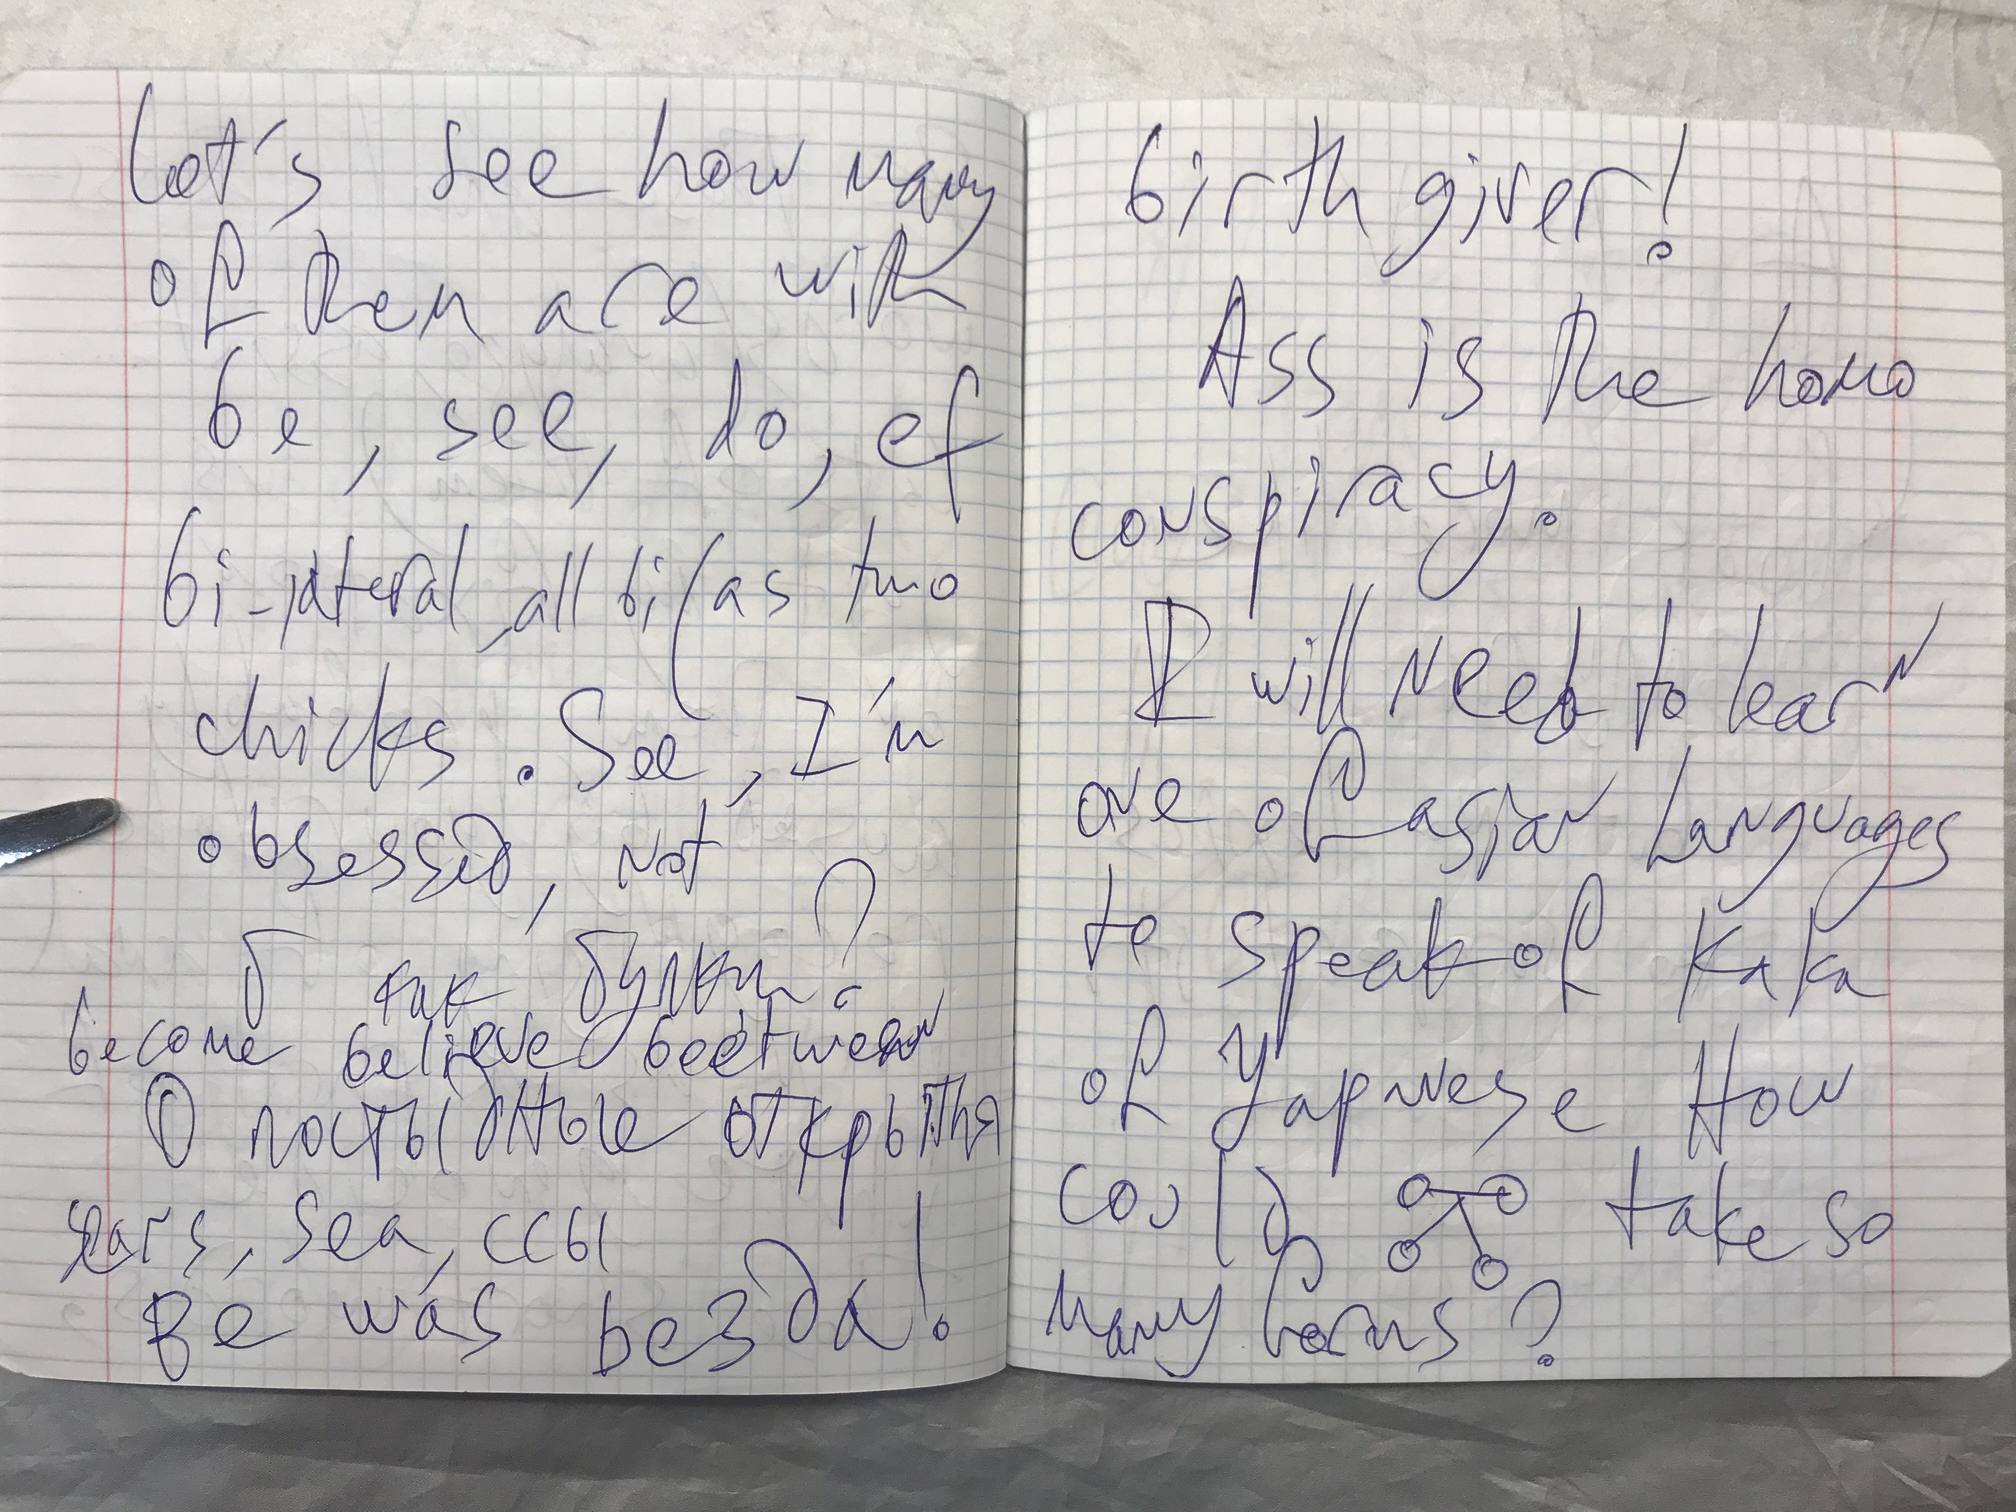 Let's see how many
of them are with
be, see, do, ef
bi-lateral, all bi(as two
chicks. See, I'm
obsessed, not
б как булки?
become believe beetween
О постыдные открытия
sears, sea, ссы
Be was везда!
birth giver!
Ass is the homo
conspiracy.
I will need to learn
one of asian languages
to speak of kaka
of Yapnese How
could take so
many forms?